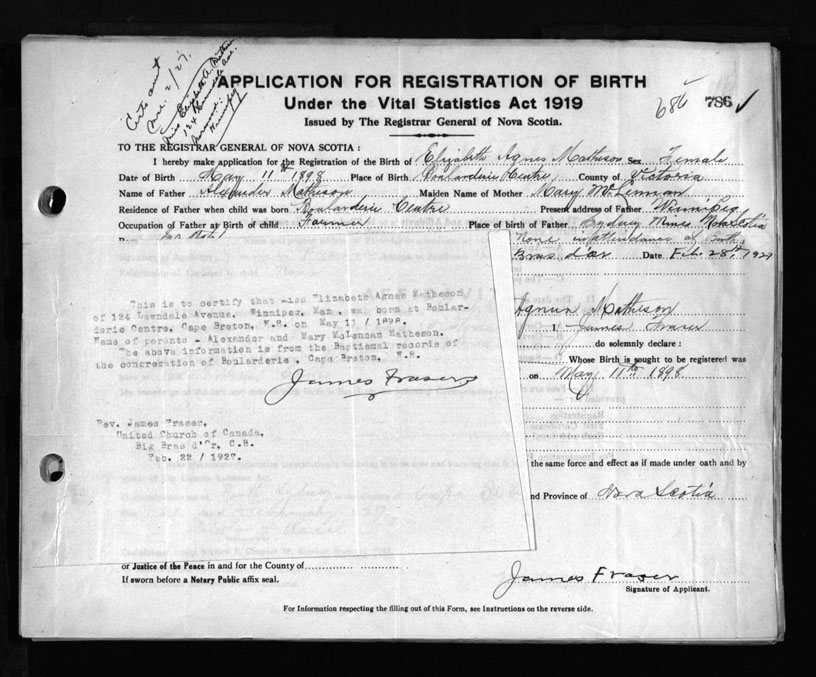 Mar. 2/27.
Miss Elizabeth A.
124 Lawndale Ave.
Winnipeg
APPLICATION FOR REGISTRATION OF BIRTH
Under the Vital Statistics Act 1919
Issued by The Registrar General of Nova Scotia.
786
TO THE REGISTRAR GENERAL OF NOVA SCOTIA :
I hereby make application for the Registration of the Birth of Elizabeth Agnes Matheson Sex Female
Date of Birth May 11th 1898 Place of Birth Boularderie Centre County of Victoria
Name of Father Alexander Matheson Maiden Name of Mother Mary McLennan
Residence of Father when child was born Boularderie Centre Present address of Father Winnipeg
Occupation of Father at Birth of child Farmer Place of birth of Father Sydney Mines Nova Scotia
None in attendance at Birth
Bras d'or Date Feb. 28th 1927
This is to certify that Miss Elizabeth Agnes Matheson
of 124 Lawndale Avenue. Winnipez, Man. was born at Boular-
derie Centre, Cape Breton, N.S. on May 11/ 1898.
Name of parents - Alexander and Mary McLennan Matheson.
The above information is from the Baptismal records of
the congregation of Boularderie , Cape Breton, N.S.
James Fraser
Rev. James Fraser,
United Church of Canada,
Big Bras d'Or, C.B.
Feb. 22 / 1927.
Agnes Matheson
I, James Fraser
do solemnly declare :
Whose Birth is sought to be registered was
on May 11th 1898
the same force and effect as if made under oath and by
nd Province of Nova Scotia
or Justice of the Peace in and for the County of
If sworn before a Notary Public affix seal.
James Fraser
Signature of Applicant.
For Information respecting the filling out of this Form, see Instructions on the reverse side.